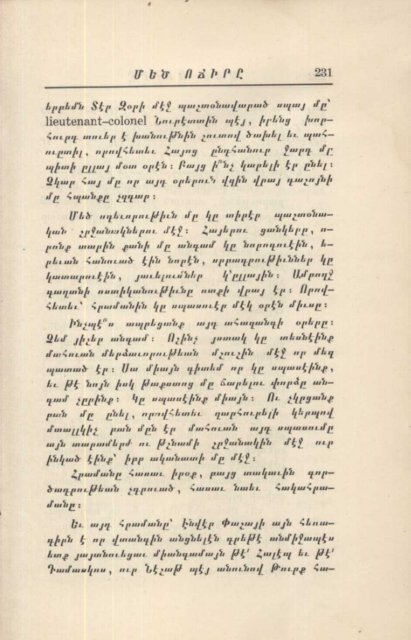 ՄԵԾ ՈՃԻՐԸ 231
երբեմն Տէր Զօրի մէջ պաշտօնավարած սպայ մը՝
lieutenant-colonel Նուրէտտին պէյ, իրենց խոր-
հուրդ տուեր է խանութնին շուտով ծախել եւ պահ-
ուըտիլ, որովհետեւ Հայոց ընդհանուր ջարդ մը
պիտի ըլլայ մօտ օրէն։ Բայց ի՞նչ կարելի էր ընել։
Չկար Հայ մը որ այդ օրերուն վզին վրայ դաշոյնի
մը հպանքը չզգար։
Մեծ ոգեւորութիւն մը կը տիրէր պաշտօնա-
կան շրջանակներու մէջ։ Հայերու ցանկերը, ո-
րոնք տարին քանի մը անգամ կը նորոգուէին, ե-
րեւան հանուած էին նորէն, սրբագրութիւններ կը
կատարուէին, յաւելումներ կ՚ըլլային։ Ամբողջ
գաղտնի ոստիկանութիւնը ոտքի վրայ էր։ Որով-
հետեւ՝ հրամանին կը սպասուէր մէկ օրէն միւսը։
Ինչպէ՞ս ապրեցանք այդ ահազանգի օրերը։
Չեմ յիշեր անգամ։ Ոչինչ յստակ կը տեսնէինք
մահուան մերձաւորութեան մշուշին մէջ որ մեզ
պատած էր։ Սա միայն գիտեմ որ կը սպասէինք,
եւ թէ նոյն իսկ Թաքստոց մը ճարելու փորձը ան-
գամ չըրինք։ Կը սպասէինք միայն։ Ու չկրցանք
բան մը ընել, որովհետեւ զարհուրելի կերպով
մտալլկիչ բան մըն էր մահուան այդ սպասումը
այն տարամերժ ու թշնամի շրջանակին մէջ ուր
ինկած էինք՝ իբր ականատի մը մէջ։
Հրամանը հասաւ իրօք, բայց տակաւին գոր-
ծադրութեան չդրուած, հասաւ նաեւ հակահրա-
մանը։
Եւ այդ հրամանը՝ Էնվէր Փաշայի այն հեռա-
գիրն է որ վտանգին անցնելէն գրեթէ անմիջապէս
ետք յայտնուեցաւ միանգամայն թէ՛ Հալէպ եւ թէ՛
Դամասկոս, ուր Նէշաթ պէյ անունով Թուրք հա-